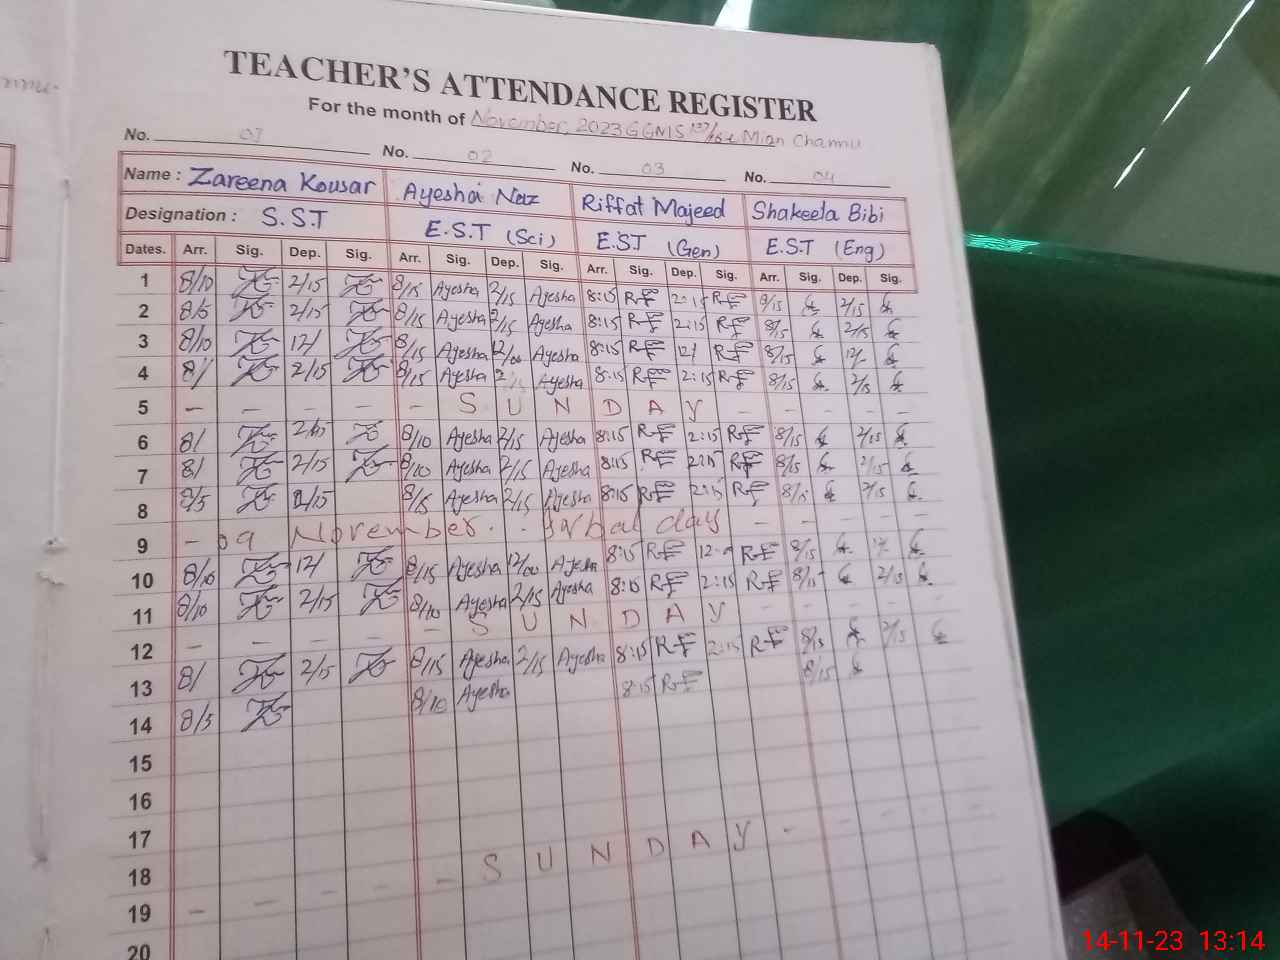 TEACHER'S ATTENDANCE REGISTER
For the month of November 2023 GGMS Mian Channu
No. 01 No. 02 No. 03 No. 04
Name : Zareena Kousar Ayesha Naz Riffat Majeed Shakeela Bibi
Designation : S.S.T E.S.T (Sci) E.S.T (Gen) E.S.T (Eng)
Dates. Arr. Sig. Dep. Sig. Arr. Sig. Dep. Sig. Arr. Sig. Dep. Sig. Arr. Sig. Dep. Sig.
1 8/10 2/15 8/15 Ayesha 2/15 Ayesha 8:15 RF 2:15 RF 8/15 2/15
2 8/5 2/15 8/15 Ayesha 2/15 Ayesha 8:15 RF 2:15 RF 8/15 2/15
3 8/10 12/ 8/15 Ayesha 12/00 Ayesha 8:15 RF 12/ RF 8/15 12/
4 8/ 2/15 8/15 Ayesha 2/15 Ayesha 8:15 RF 2:15 RF 8/15 2/15
5 - - - - - S U N D A Y - - - - -
6 8/ 2/15 8/10 Ayesha 2/15 Ayesha 8:15 RF 2:15 RF 8/15 2/15
7 8/ 2/15 8/10 Ayesha 2/15 Ayesha 8:15 RF 2:15 RF 8/15 2/15
8 8/5 2/15 8/15 Ayesha 2/15 Ayesha 8:15 RF 2:15 RF 8/15 2/15
9 - 09 November. day - - - - -
10 8/10 12/ 8/15 Ayesha 12/00 Ayesha 8:15 RF RF 8/15 12/
11 8/10 2/15 8/10 Ayesha 2/15 Ayesha 8:15 RF 2:15 RF 8/15 2/15
12 - - - - - S U N D A Y - - - - -
13 8/ 2/15 8/15 Ayesha 2/15 Ayesha 8:15 RF 2:15 RF 8/15 2/15
14 8/5 8/10 Ayesha 8:15 RF 8/15
15
16
17
18
19 - - - - - S U N D A Y - - - - -
20
14-11-23 13:14